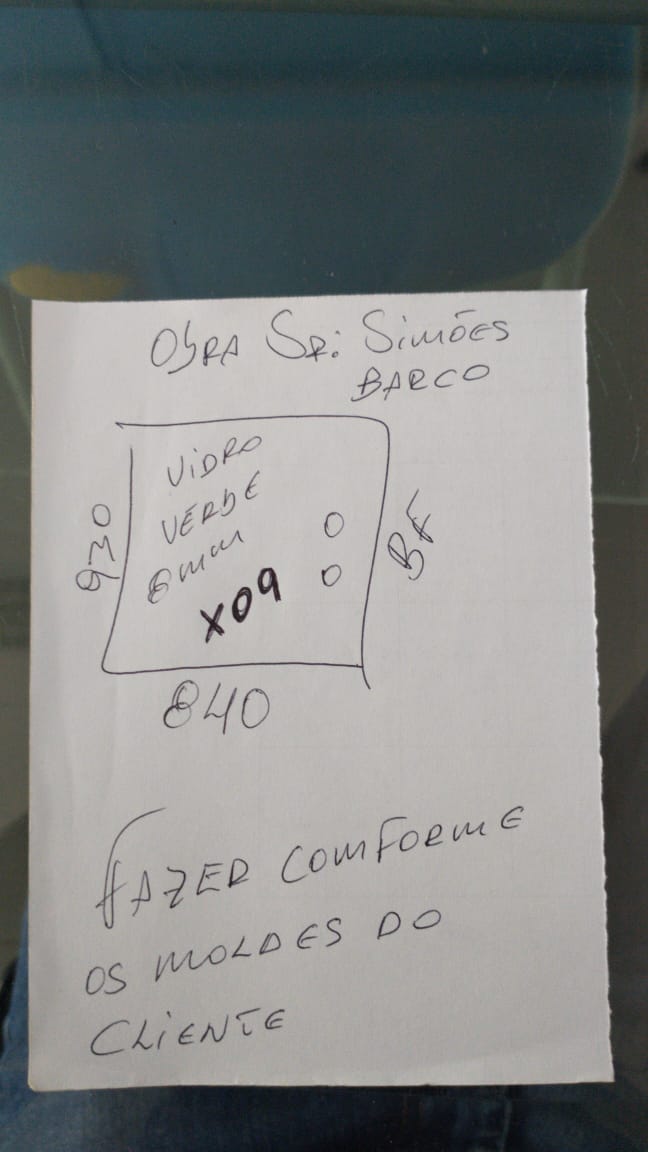 OBRA SR: SIMÕES
BARCO
VIDRO
VERDE
6mm
X09
930
BF
840
FAZER COMFORME
OS MOLDES DO
CLIENTE